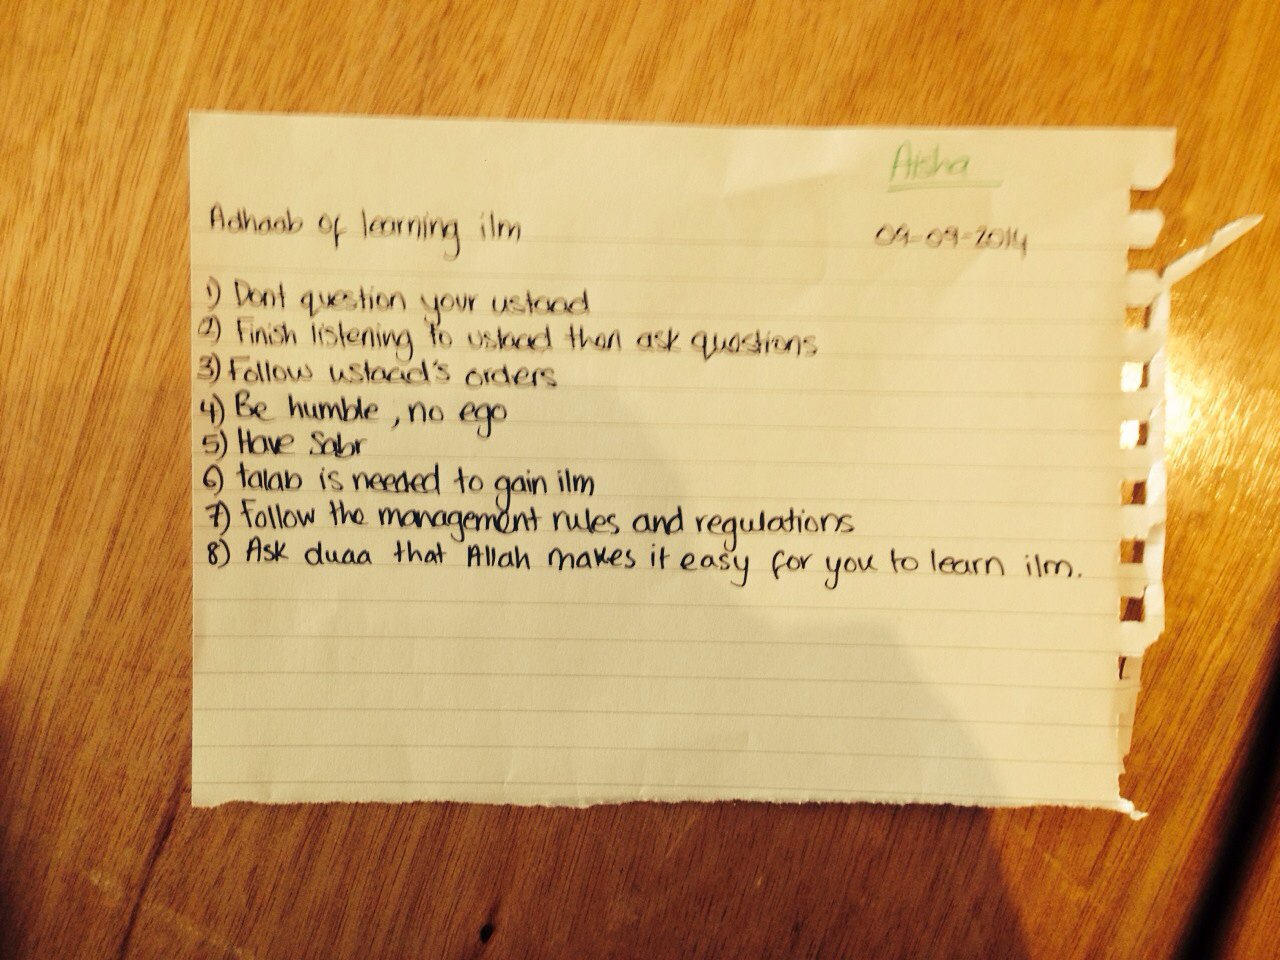 Aisha
Adhaab of learning ilm 09-09-2014
1) Dont question your ustaad
2) Finish listening to ustaad then ask questions
3) Follow ustaad's orders
4) Be humble, no ego
5) Have Sabr
6) talab is needed to gain ilm
7) Follow the management rules and regulations
8) Ask duaa that Allah makes it easy for you to learn ilm.